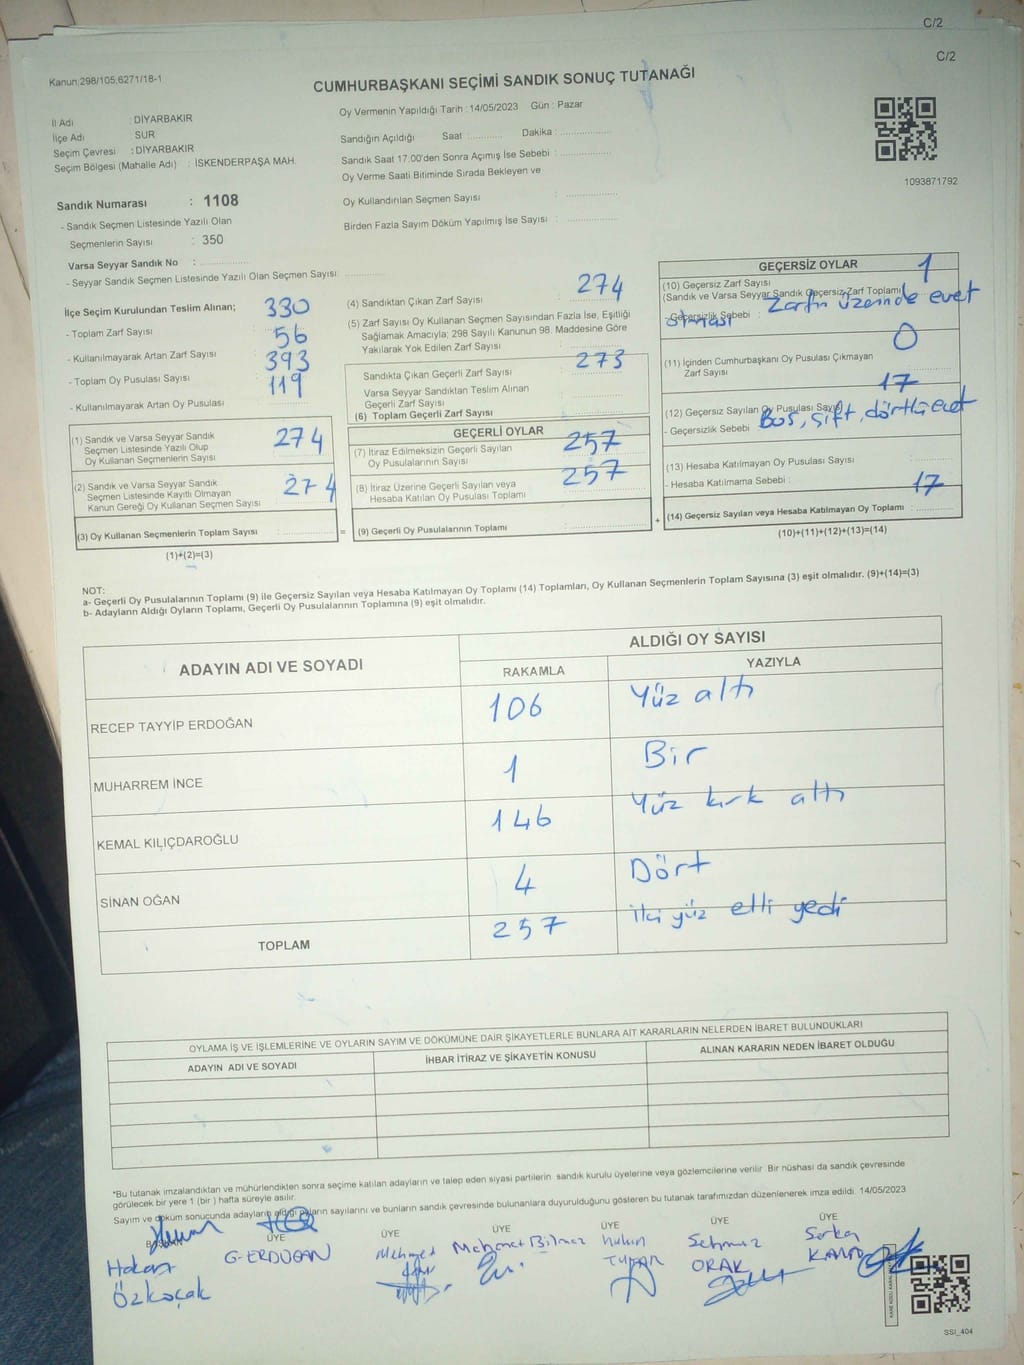 C/2
C/2
Kanun:298/105,6271/18-1
CUMHURBAŞKANI SEÇİMİ SANDIK SONUÇ TUTANAĞI
İl Adı : DİYARBAKIR
İlçe Adı : SUR
Seçim Çevresi : DİYARBAKIR
Seçim Bölgesi (Mahalle Adı) : İSKENDERPAŞA MAH.
Oy Vermenin Yapıldığı Tarih : 14/05/2023 Gün : Pazar
Sandığın Açıldığı Saat :............ Dakika :................
Sandık Saat 17.00'den Sonra Açımış İse Sebebi :................
Oy Verme Saati Bitiminde Sırada Bekleyen ve
Oy Kullandırılan Seçmen Sayısı : ................
Birden Fazla Sayım Döküm Yapılmış İse Sayısı : ................
1093871792
Sandık Numarası : 1108
- Sandık Seçmen Listesinde Yazılı Olan
Seçmenlerin Sayısı : 350
Varsa Seyyar Sandık No : ................
- Seyyar Sandık Seçmen Listesinde Yazılı Olan Seçmen Sayısı: ................
İlçe Seçim Kurulundan Teslim Alınan; 330
- Toplam Zarf Sayısı : 56
- Kullanılmayarak Artan Zarf Sayısı : 393
- Toplam Oy Pusulası Sayısı : 119
- Kullanılmayarak Artan Oy Pusulası :
(1) Sandık ve Varsa Seyyar Sandık
Seçmen Listesinde Yazılı Olup
Oy Kullanan Seçmenlerin Sayısı 274
(2) Sandık ve Varsa Seyyar Sandık
Seçmen Listesinde Kayıtlı Olmayan
Kanun Gereği Oy Kullanan Seçmen Sayısı : 274
(3) Oy Kullanan Seçmenlerin Toplam Sayısı : ................ =
(1)+(2)=(3)
(4) Sandıktan Çıkan Zarf Sayısı : 274
(5) Zarf Sayısı Oy Kullanan Seçmen Sayısından Fazla İse, Eşitliği
Sağlamak Amacıyla; 298 Sayılı Kanunun 98. Maddesine Göre
Yakılarak Yok Edilen Zarf Sayısı :
Sandıkta Çıkan Geçerli Zarf Sayısı : 273
Varsa Seyyar Sandıktan Teslim Alınan
Geçerli Zarf Sayısı :
(6) Toplam Geçerli Zarf Sayısı :
GEÇERLİ OYLAR
(7) İtiraz Edilmeksizin Geçerli Sayılan
Oy Pusulalarının Sayısı : 257
(8) İtiraz Üzerine Geçerli Sayılan veya
Hesaba Katılan Oy Pusulası Toplamı : 257
(9) Geçerli Oy Pusulalarının Toplamı : ................ +
GEÇERSİZ OYLAR
(10) Geçersiz Zarf Sayısı 1
(Sandık ve Varsa Seyyar Sandık Geçersiz Zarf Toplamı)
- Geçersizlik Sebebi : Zarfın üzerinde evet
olması
0
(11) İçinden Cumhurbaşkanı Oy Pusulası Çıkmayan
Zarf Sayısı
17
(12) Geçersiz Sayılan Oy Pusulası Sayısı
- Geçersizlik Sebebi Boş, çift, dörtlü evet
(13) Hesaba Katılmayan Oy Pusulası Sayısı :
- Hesaba Katılmama Sebebi : 17
(14) Geçersiz Sayılan veya Hesaba Katılmayan Oy Toplamı :
(10)+(11)+(12)+(13)=(14)
NOT:
a- Geçerli Oy Pusulalarının Toplamı (9) ile Geçersiz Sayılan veya Hesaba Katılmayan Oy Toplamı (14) Toplamları, Oy Kullanan Seçmenlerin Toplam Sayısına (3) eşit olmalıdır. (9)+(14)=(3)
b- Adayların Aldığı Oyların Toplamı, Geçerli Oy Pusulalarının Toplamına (9) eşit olmalıdır.
ADAYIN ADI VE SOYADI
ALDIĞI OY SAYISI
RAKAMLA YAZIYLA
RECEP TAYYİP ERDOĞAN 106 Yüz altı
MUHARREM İNCE 1 Bir
KEMAL KILIÇDAROĞLU 146 Yüz kırk altı
SİNAN OĞAN 4 Dört
TOPLAM 257 iki yüz elli yedi
OYLAMA İŞ VE İŞLEMLERİNE VE OYLARIN SAYIM VE DÖKÜMÜNE DAİR ŞİKAYETLERLE BUNLARA AİT KARARLARIN NELERDEN İBARET BULUNDUKLARI
ADAYIN ADI VE SOYADI İHBAR İTİRAZ VE ŞİKAYETİN KONUSU ALINAN KARARIN NEDEN İBARET OLDUĞU
*Bu tutanak imzalandıktan ve mühürlendikten sonra seçime katılan adayların ve talep eden siyasi partilerin sandık kurulu üyelerine veya gözlemcilerine verilir. Bir nüshası da sandık çevresinde
görülecek bir yere 1 (bir ) hafta süreyle asılır.
Sayım ve döküm sonucunda adayların aldığı oyların sayılarını ve bunların sandık çevresinde bulunanlara duyurulduğunu gösteren bu tutanak tarafımızdan düzenlenerek imza edildi. 14/05/2023
BAŞKAN ÜYE ÜYE ÜYE ÜYE ÜYE ÜYE
Hakan G-ERDOĞAN Mehmet Mehmet Bilmez Sehmuz Serkan
Özkoçak ORAK
SSİ_404